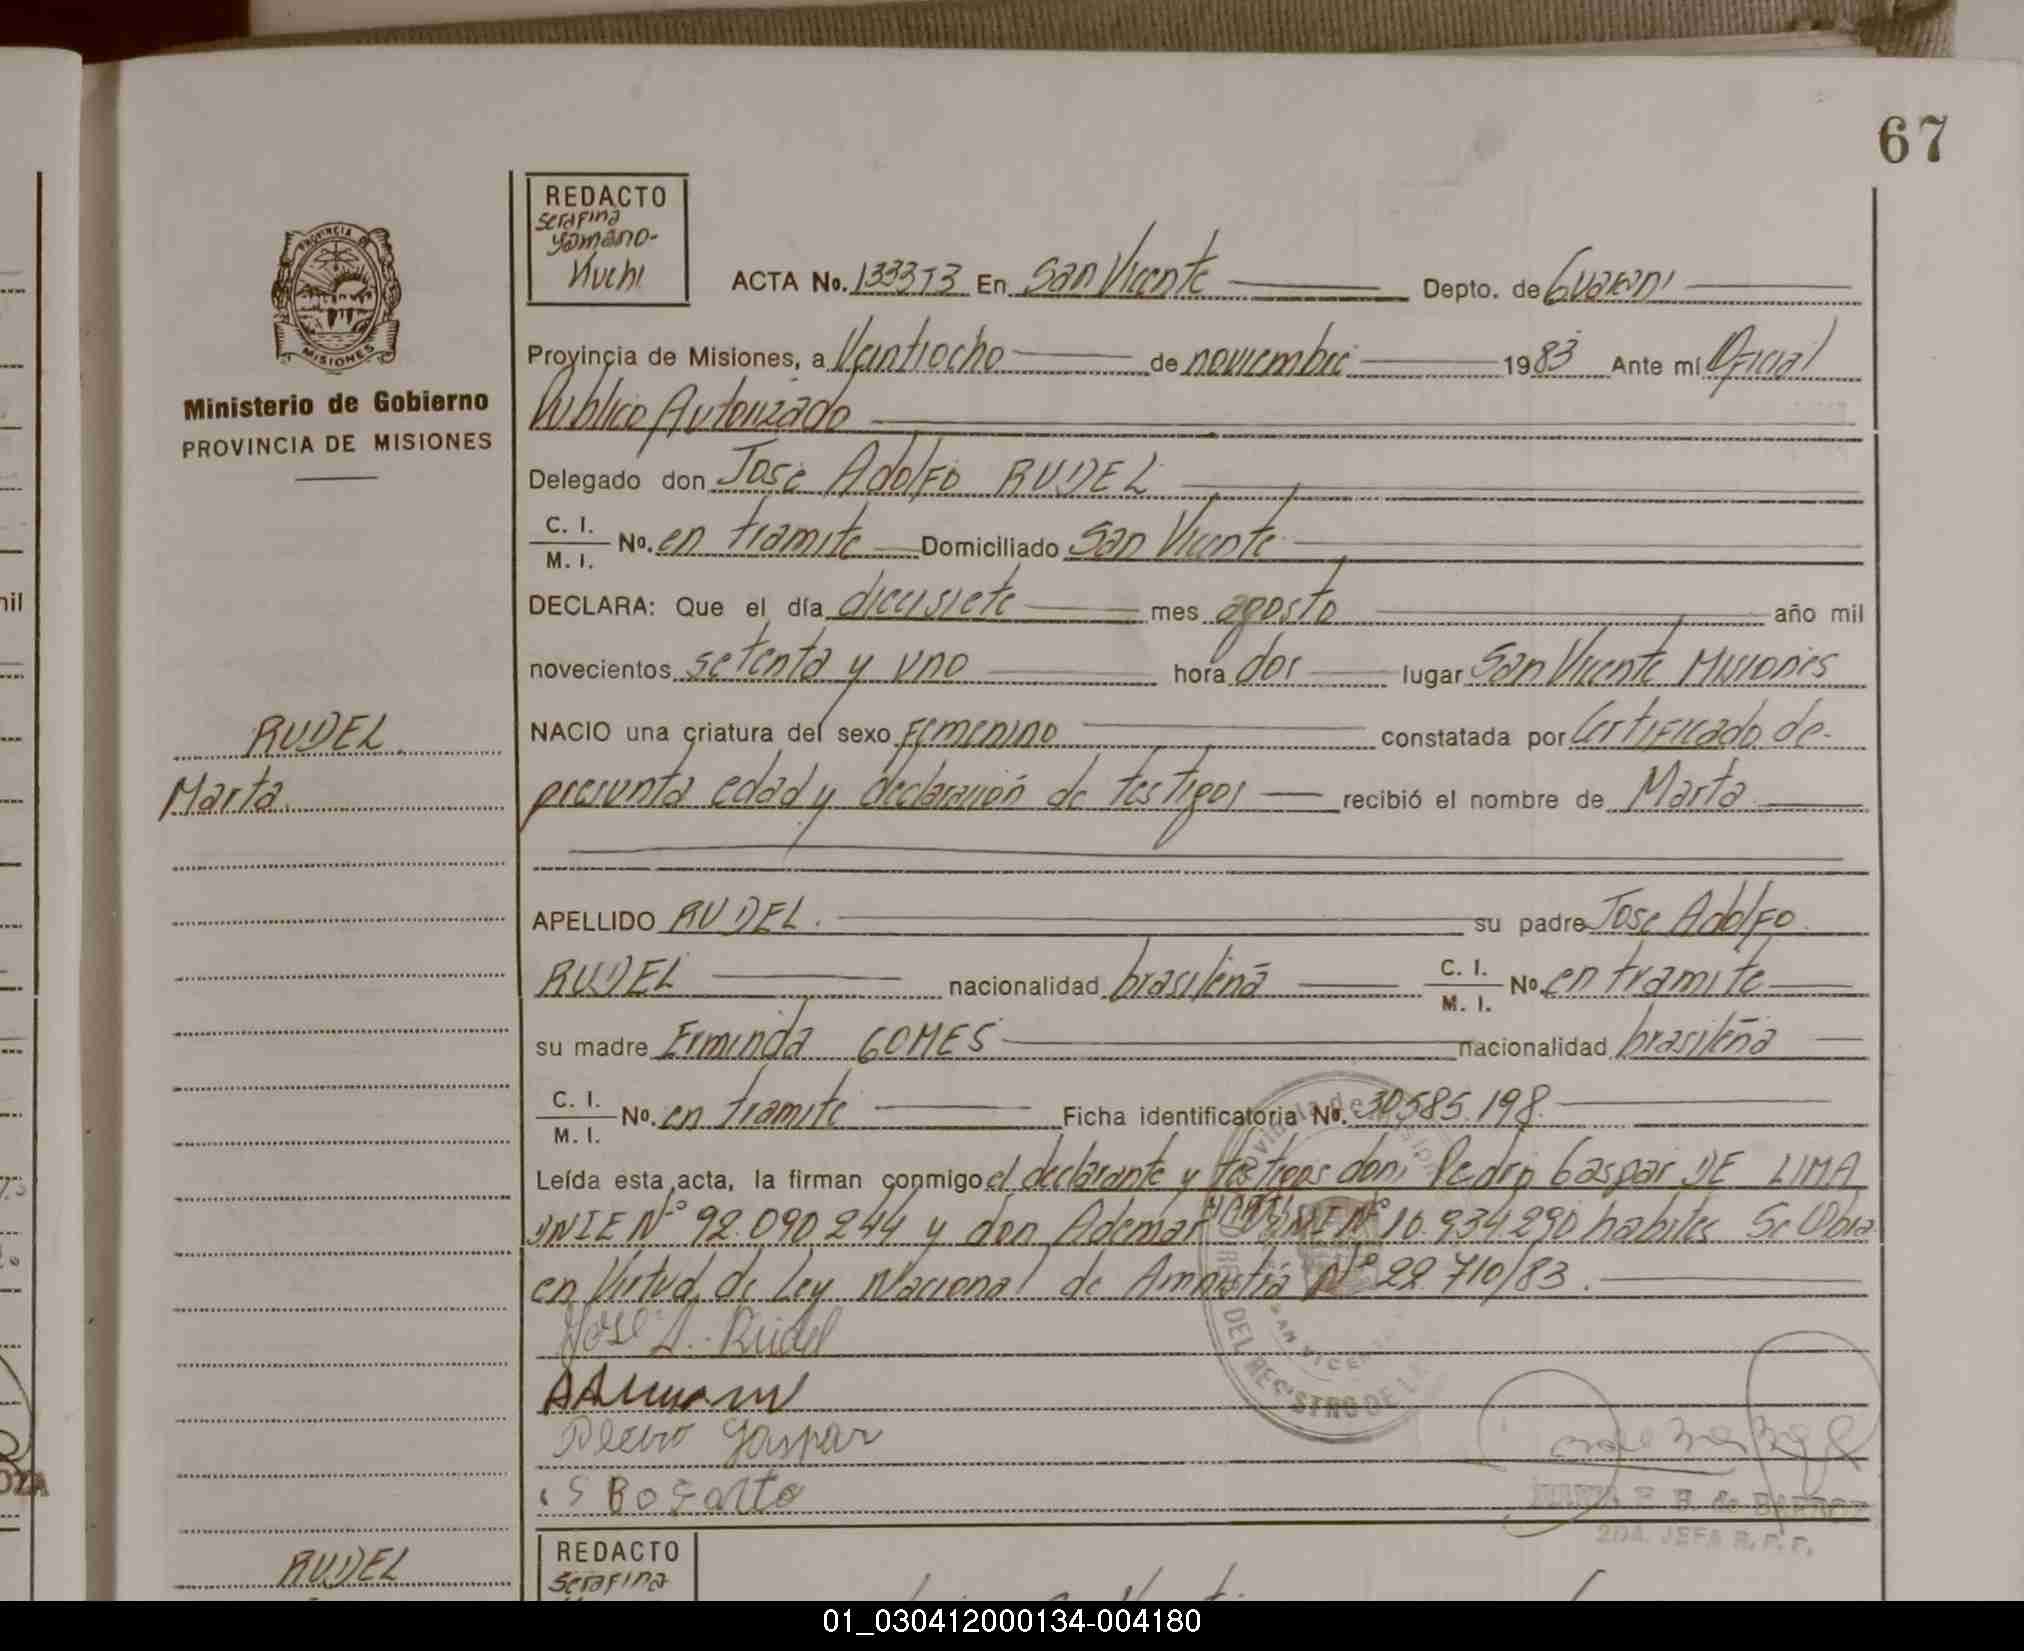 67
REDACTO
serafina
Kuchi
ACTA No. 133313 En San Vicente Depto. de Guarani
PROVINCIA DE
MISIONES
Provincia de Misiones, a Veintiocho de noviembre 1983 Ante mí Oficial
Ministerio de Gobierno
Publico Autorizado
PROVINCIA DE MISIONES
Delegado don José Adolfo RUDEL
C. I.
M. I. No. en tramite Domiciliado San Vicente
DECLARA: Que el día diecisiete mes agosto año mil
novecientos setenta y uno hora dos lugar San Vicente Misiones
RUDEL
NACIO una criatura del sexo Femenino constatada por Certificado de
Marta
presunta edad y declaración de testigos recibió el nombre de Marta
APELLIDO RUDEL. su padre Jose Adolfo
RUDEL nacionalidad brasileña C. I.
M. I. No. en tramite
su madre Erminda GOMES nacionalidad brasileña
C. I.
M. I. No. en tramite Ficha identificatoria No. 30.585.198.
Leída esta acta, la firman conmigo el declarante y testigos don Pedro Gaspar DE LIMA
DNIE Nº 92.090.244 y don Ademar DNIE Nº 10.934290 habites Se Obra
en Virtud de Ley Nacional de Amnistía Nº 22.710/83.
José A. Rudel
Pedro Gaspar
DEL REGISTRO DE LA
2DA. JEFA R.P.P.
RUDEL
REDACTO
serafina
01_030412000134-004180